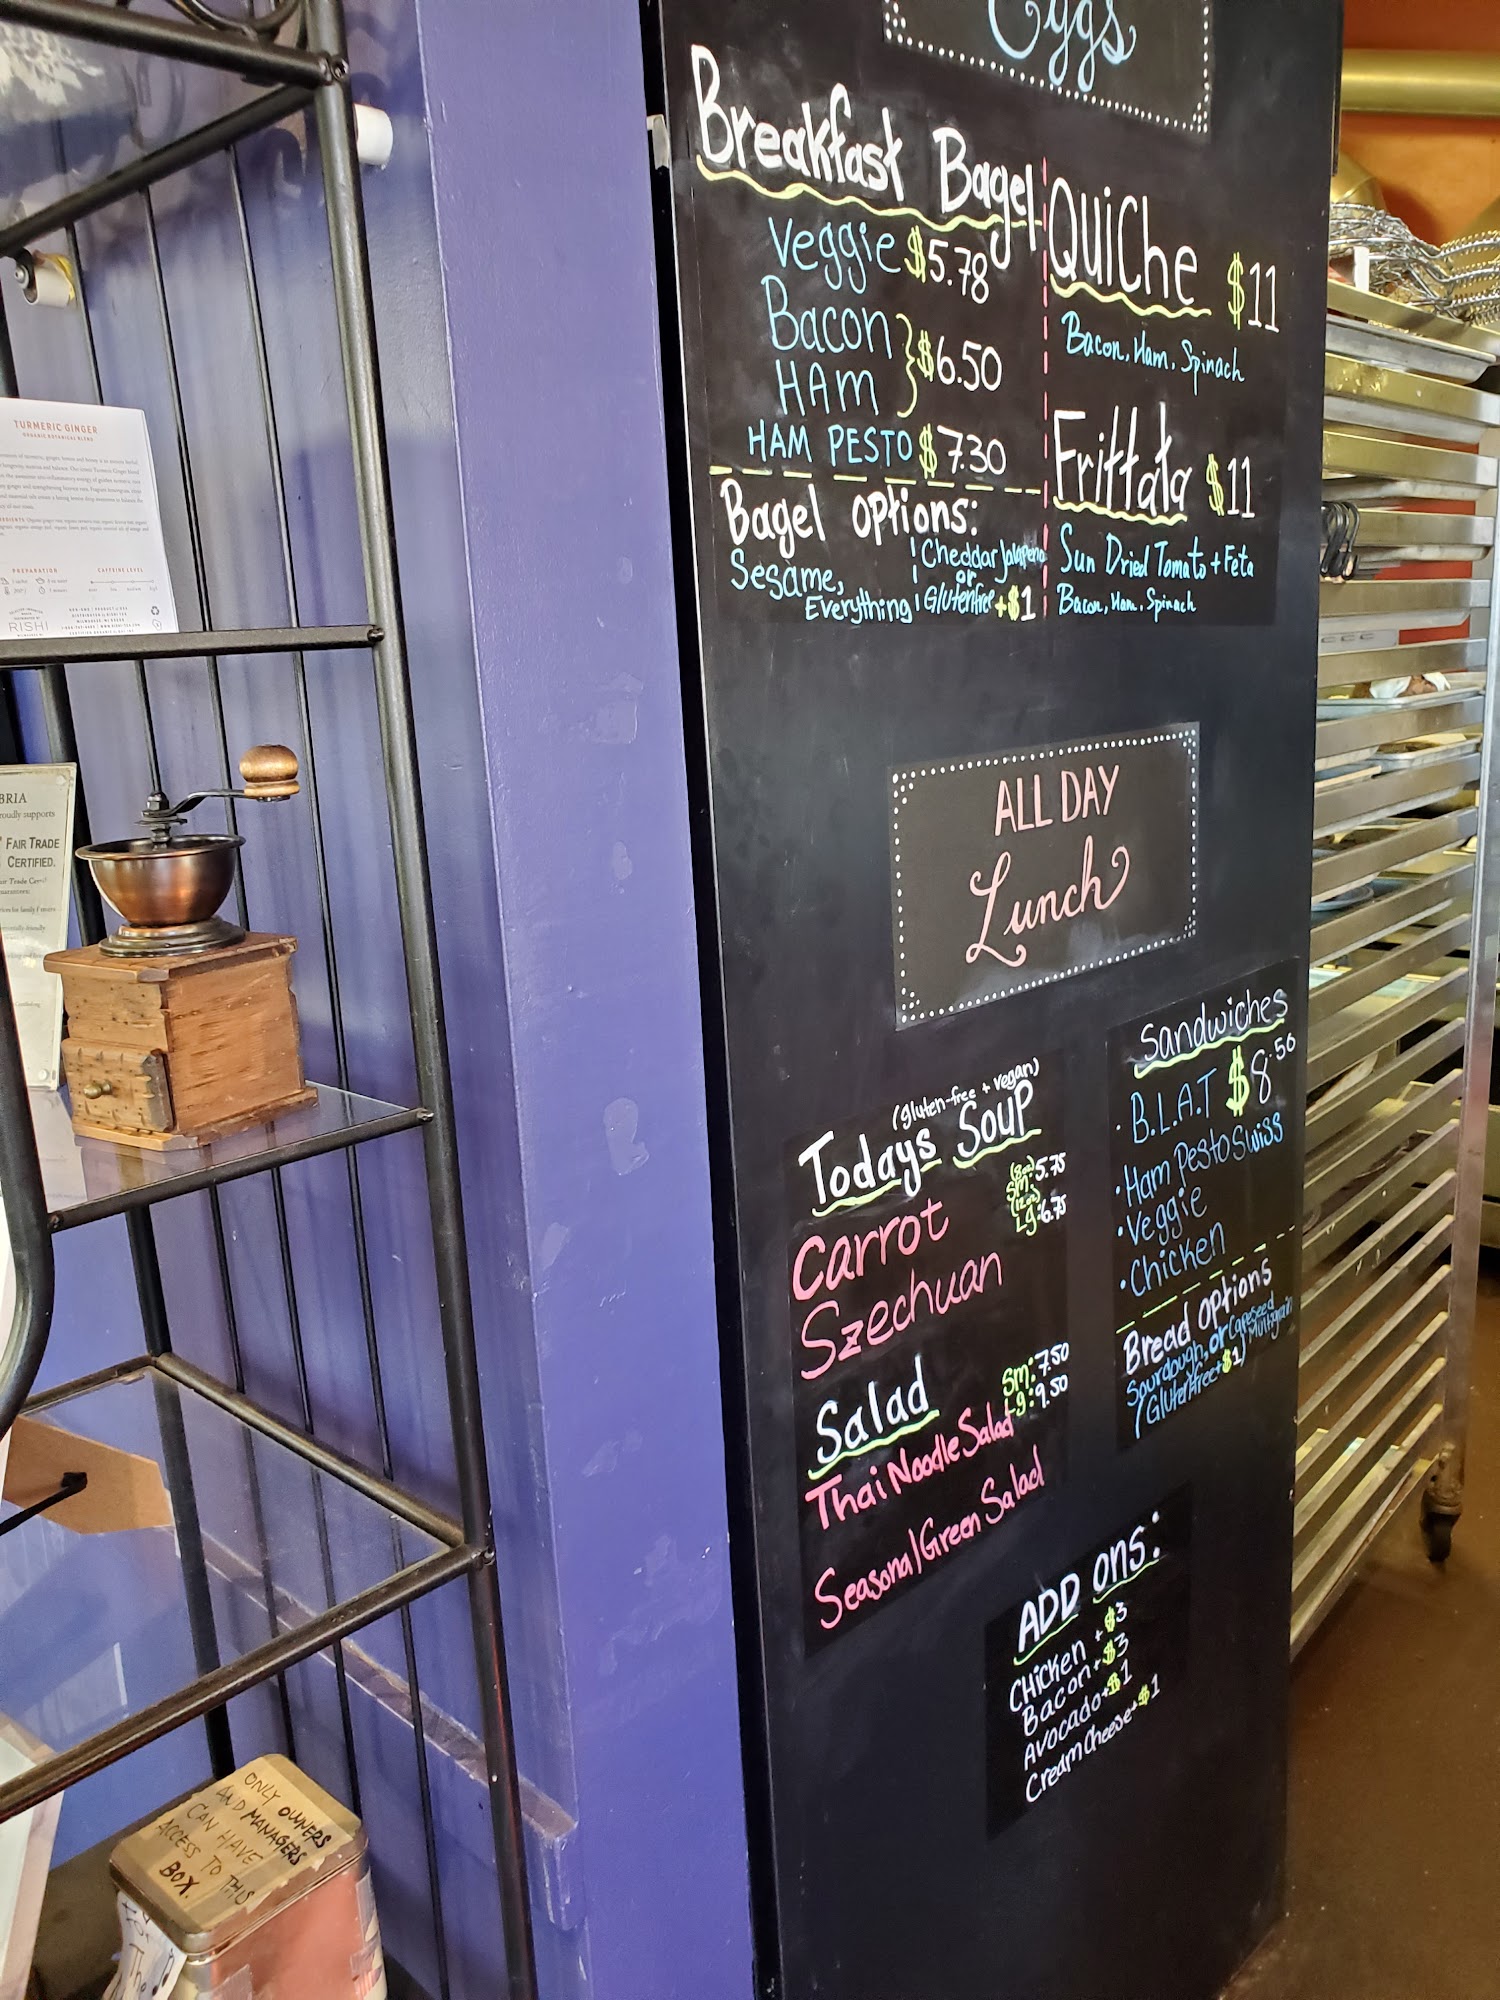 Eggs
Breakfast Bagel
Veggie $5.78
Bacon
HAM
$6.50
HAM PESTO $7.30
Bagel Options:
Sesame,
Everything
Cheddar Jalapeno
or
Glutenfree +$1
QUiChe $11
Bacon, Ham, Spinach
Frittata $11
Sun Dried Tomato + Feta
Bacon, Ham, Spinach
ALL DAY
Lunch
(gluten-free + vegan)
Todays SOUP
(8oz)
Sm: 5.75
(12oz)
Lg: 6.75
Carrot
Szechuan
Salad
Sm: 7.50
Lg: 9.50
Thai Noodle Salad
Seasonal Green Salad
Sandwiches
$8.50
· B.L.A.T
· Ham Pesto Swiss
· Veggie
· Chicken
Bread Options
Sourdough, or
Multigrain
(Glutenfree +$1)
ADD ONS:
CHicken + $3
Bacon + $3
Avocado + $1
Cream Cheese + $1
TURMERIC GINGER
ORGANIC BOTANICAL BLEND
PREPARATION
CAFFEINE LEVEL
RISHI
BRIA
roudly supports
FAIR TRADE
CERTIFIED.
ONLY OWNERS
AND MANAGERS
CAN HAVE
ACCESS TO THIS
BOX.
The